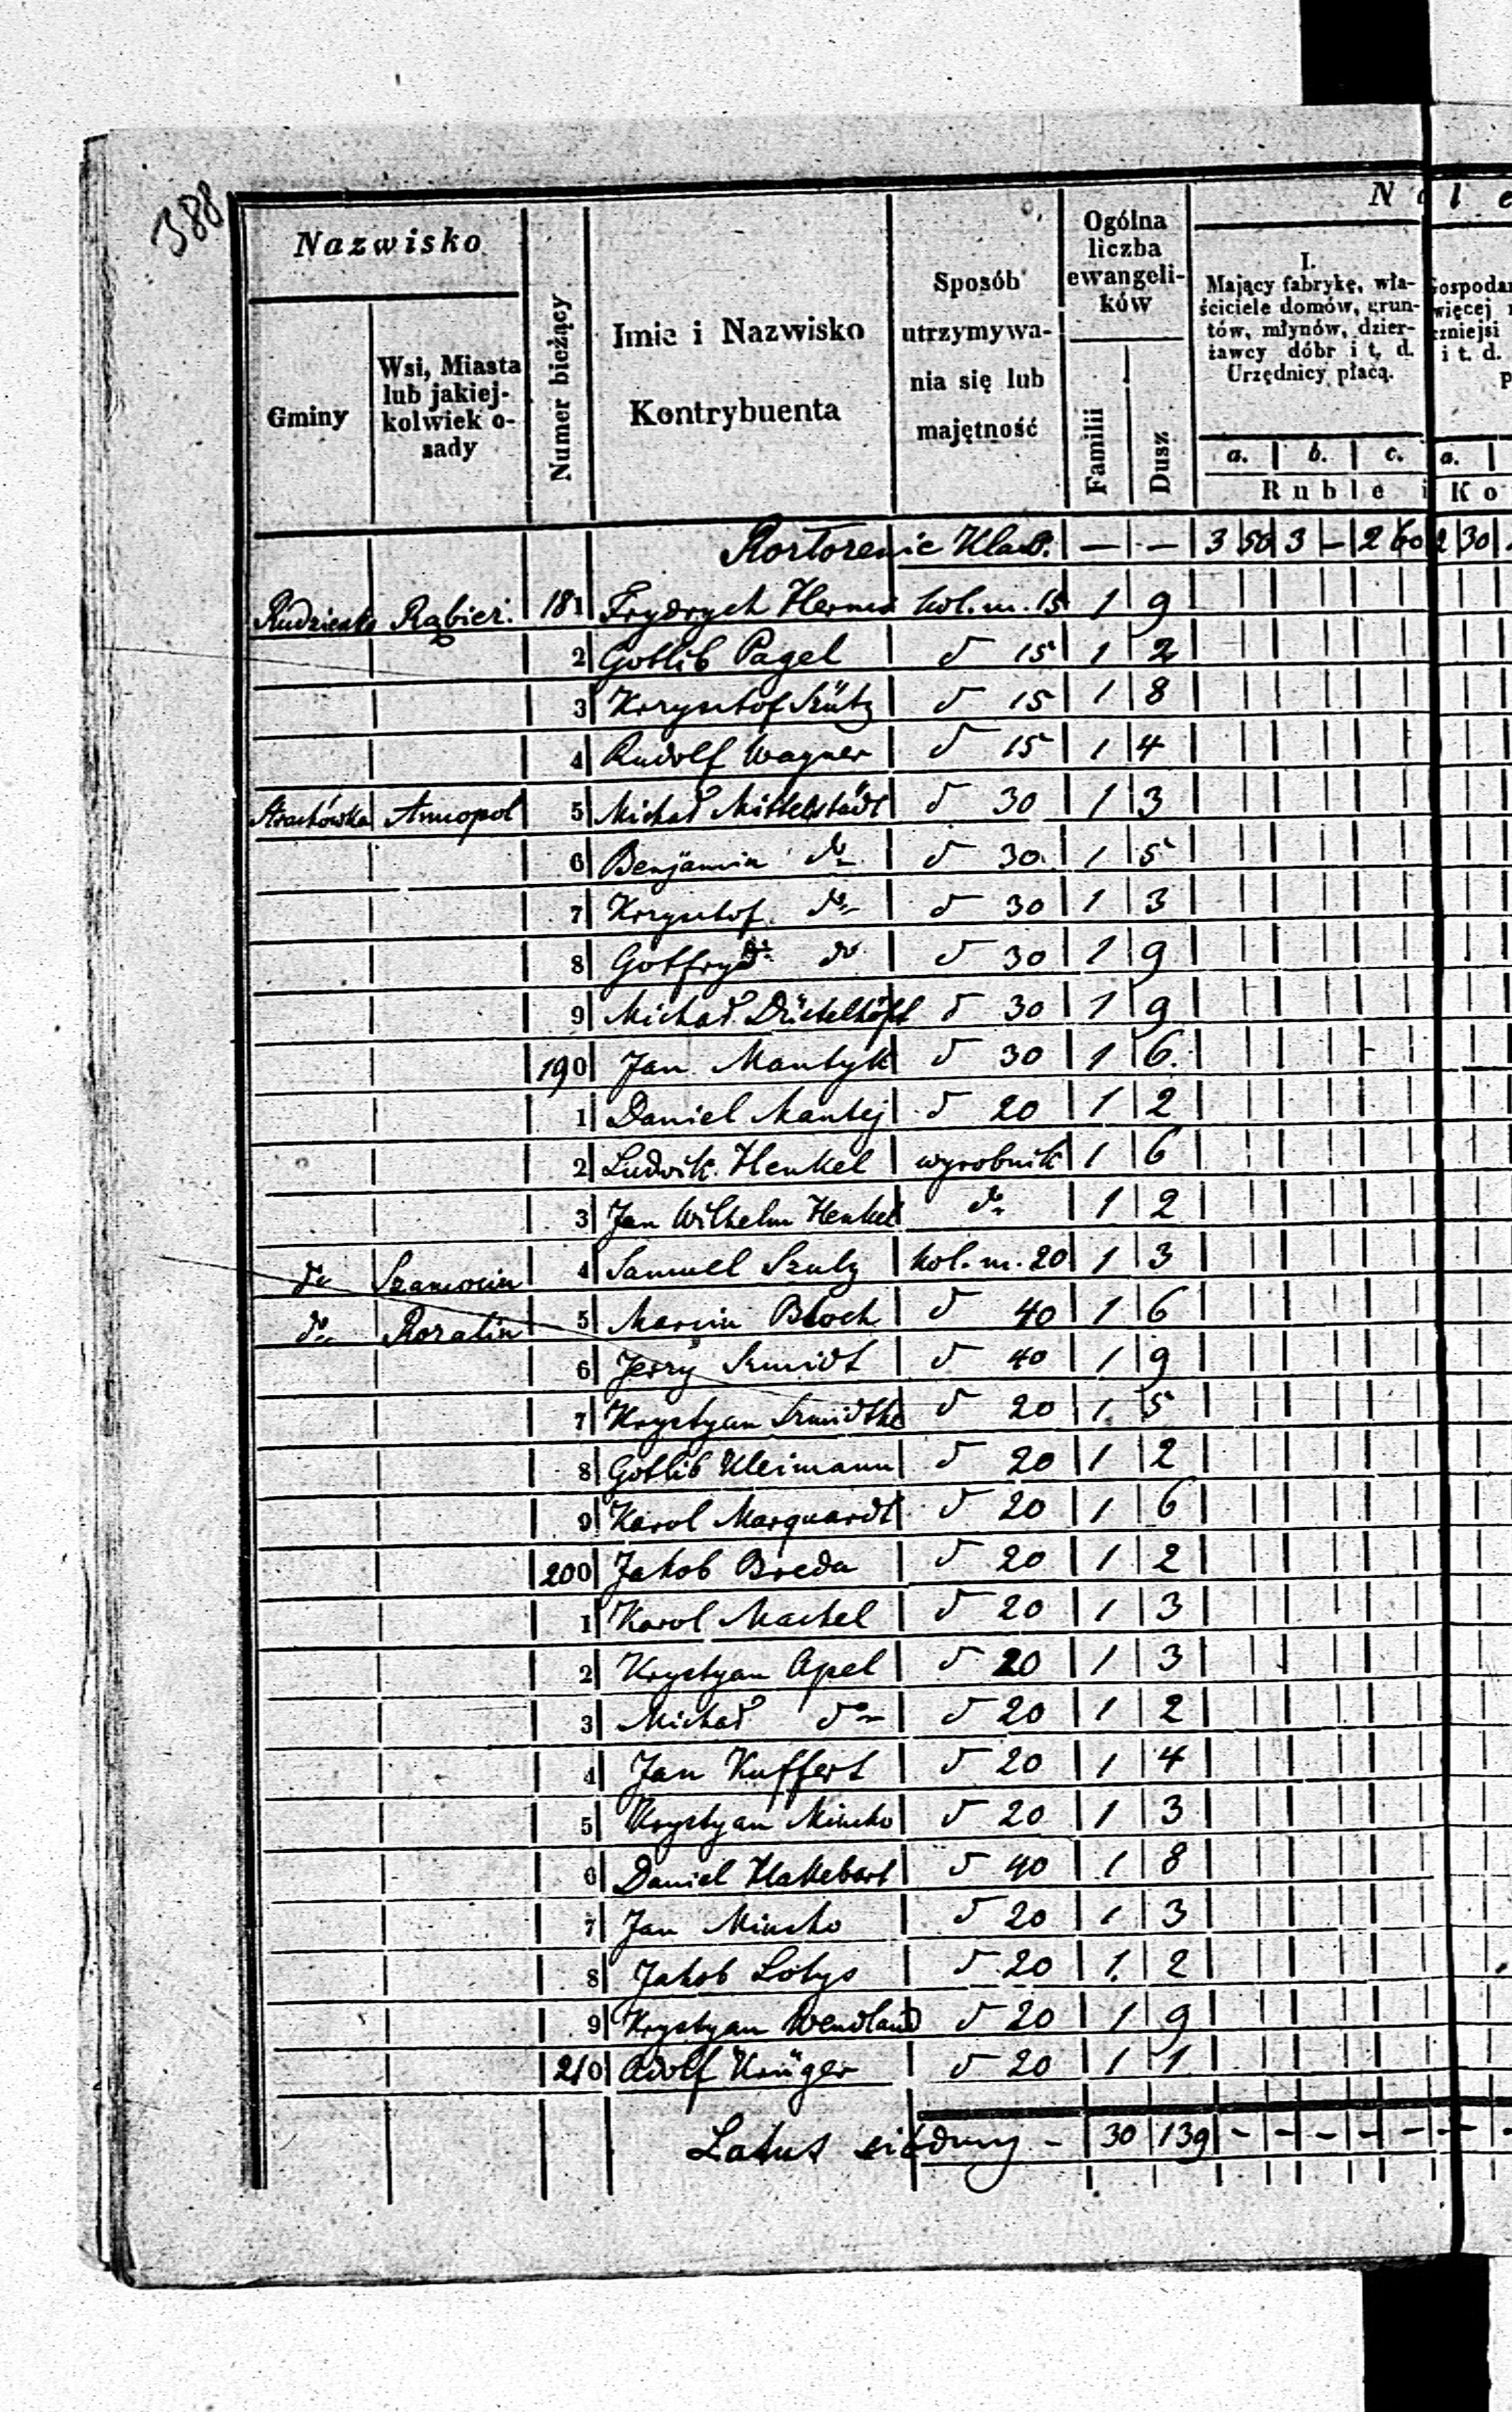 388
Nazwisko
Gminy
Wsi, Miasta lub jakiej-kolwiek o-sady
Numer bieżący
Imie i Nazwisko Kontrybuenta
Sposób utrzymywa-nia się lub majętność
Ogólna liczba ewangeli-ków
Familii
Dusz
N a l e
I.
Mający fabrykę, wła-
ściciele domów, grun-
tów, młynów, dzier-
żawcy dóbr i t. d.
Urzędnicy płacą.
Gospodar
więcej
czniejsi
i t. d.
P
a. b. c. a.
Ruble i Ko
Klass. — — 3 50 3 — 2 60 2 30
Rudzienko Rąbież. 181 Frydrych Herms kol. m. 15 1 9
2 Gotlib Pagel d 15 1 2
3 Krzysztof Szütz d 15 1 8
4 Rudolf Wagner d 15 1 4
Strachówka Annopol 5 Michał Mittelstädt d 30 1 3
6 Benjamin do d 30 1 5
7 Krzysztof do d 30 1 3
8 Gotfryd do d 30 1 9
9 Michał d 30 1 9
190 Jan Mantyk d 30 1 6
1 Daniel Mantej d 20 1 2
2 Ludwik Henkel wyrobnik 1 6
3 Jan Wilhelm Henkel do 1 2
do Szamocin 4 Samuel Szulz kol. m. 20 1 3
do Rozalin 5 Marcin Bloch d 40 1 6
6 Jerzy Szmidt d 40 1 9
7 Krystyan Szmidtke d 20 1 5
8 Gotlib Kleimann d 20 1 2
9 Karol Marquardt d 20 1 6
200 Jakob Breda d 20 1 2
1 Karol Machel d 20 1 3
2 Krystyan Apel d 20 1 3
3 Michał do d 20 1 2
4 Jan Kuffert d 20 1 4
5 Krystyan d 20 1 3
6 Daniel Hakebart d 40 1 8
7 Jan d 20 1 3
8 Jakob Lotys d 20 1 2
9 Krystyan Wendland d 20 1 9
210 Adolf Krüger d 20 1 1
Latus siódmy - 30 139 - - - - - -